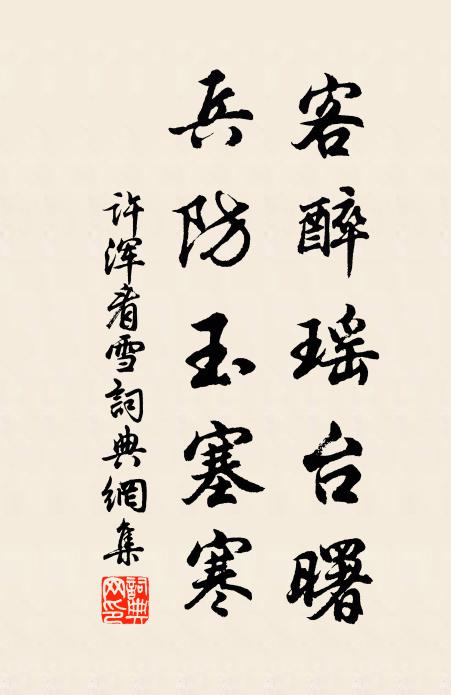 客醉瑶台曙
兵防玉塞寒
许浑看雪詞典網集
詞典网印